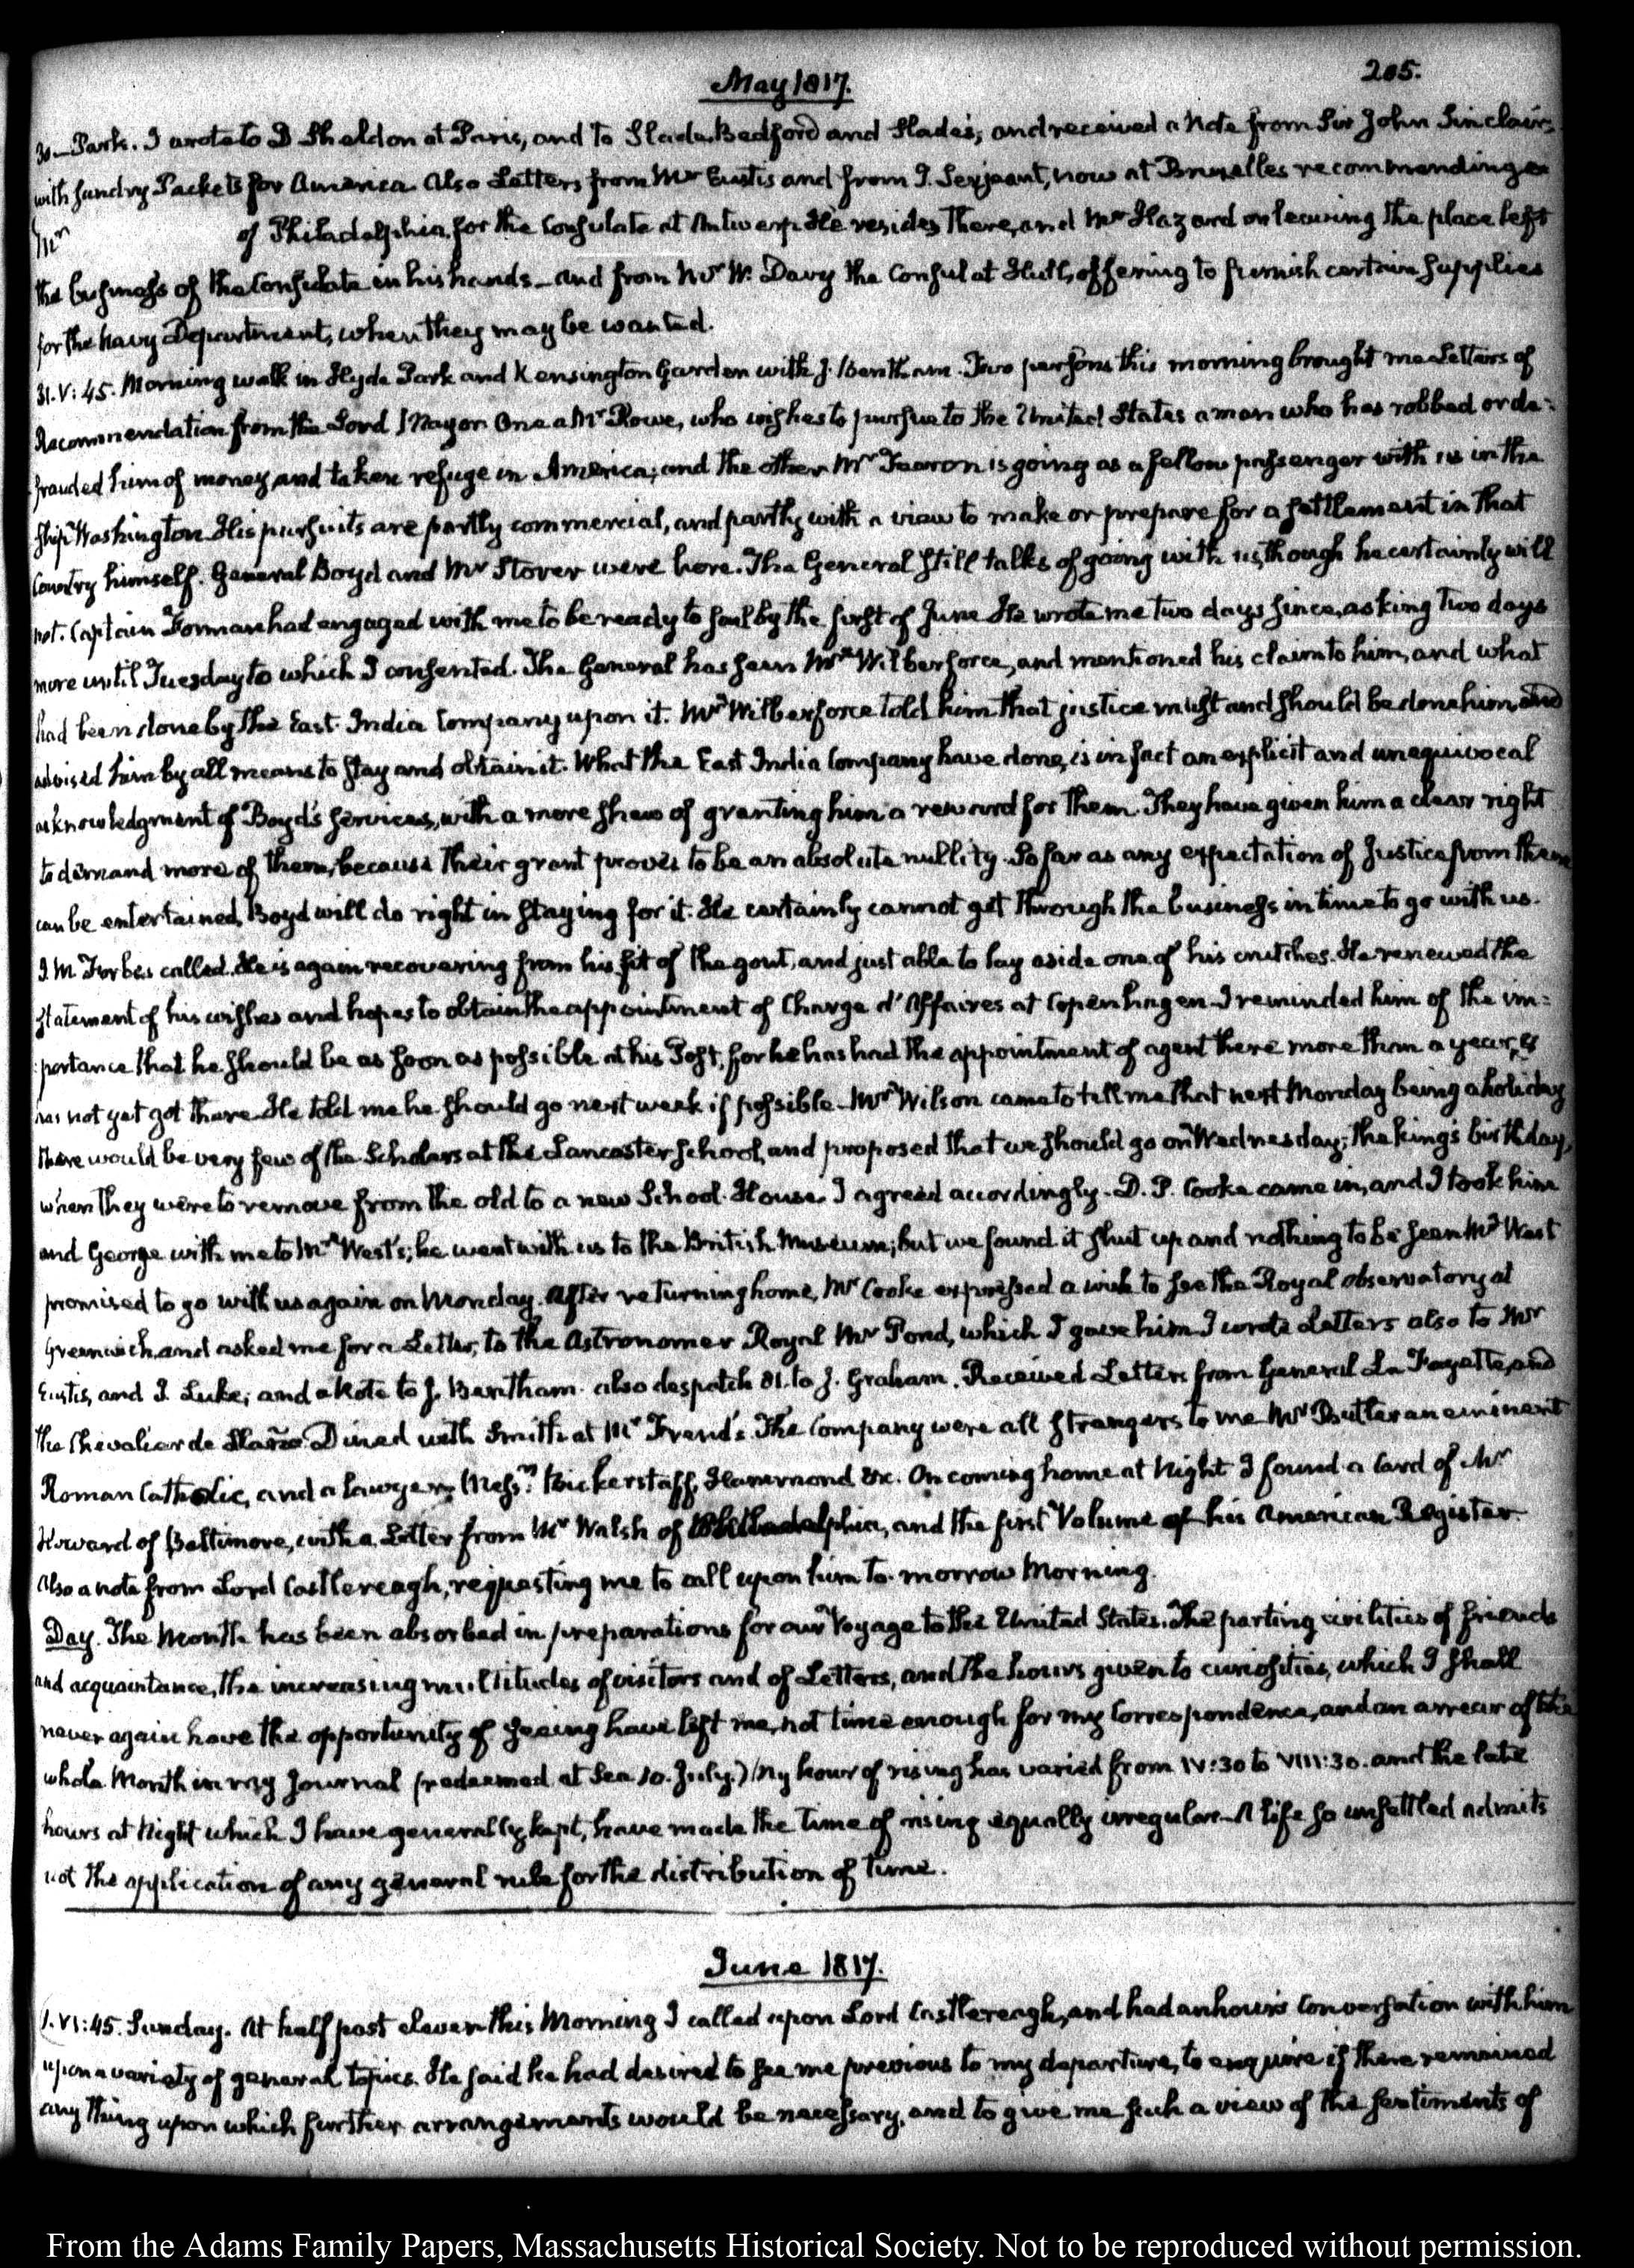 May 1817.
205.
30— Park. I wrote to D Sheldon at Paris, and to Slade, Bedford and Slades; and received a Note from Sir John Sinclair,
with sundry Packets for America. Also Letters from Mr Eustis and from J. Serjeant, now at Bruxelles recommending a
Mr of Philadelphia, for the Consulate at Antwerp. He resides there, and Mr Hazard on leaving the place left
the business of the Consulate in his hands— and from Mr W. Davy the Consul at Hull, offering to furnish certain supplies
for the Navy Department, when they may be wanted.
31. V:45. Morning walk in Hyde Park and Kensington Garden with J. Bentham. Two persons this morning brought me Letters of
Recommendation from the Lord Mayor. One a Mr Rowe, who wishes to pursue to the United States a man who has robbed or de-
frauded him of money, and taken refuge in America; and the other Mr Fearon is going as a fellow passenger with us in the
Ship Washington. His pursuits are partly commercial, and partly with a view to make or prepare for a settlement in that
Country himself. General Boyd and Mr Storer were here. The General still talks of going with us, though he certainly will
not. Captain Forman had engaged with me to be ready to sail by the first of June. He wrote me two days since, asking two days
more until Tuesday to which I consented. The General has seen Mr Wilberforce, and mentioned his claim to him, and what
had been done by the East India Company upon it. Mr Wilberforce told him that justice must and should be done him, and
advised him by all means to stay and obtain it. What the East India Company have done, is in fact an explicit and unequivocal
acknowledgment of Boyd's services, with a mere shew of granting him a reward for them. They have given him a clear right
to demand more of them, because their grant proves to be an absolute nullity. So far as any expectation of Justice from them
can be entertained, Boyd will do right in staying for it. He certainly cannot get through the business in time to go with us.
J. M. Forbes called. He is again recovering from his fit of the gout, and just able to lay aside one of his crutches. He renewed the
statement of his wishes and hopes to obtain the appointment of Charge d'Affaires at Copenhagen. I reminded him of the im-
:portance that he should be as soon as possible at his Post, for he has had the appointment of agent there more than a year, &
has not yet got there. He told me he should go next week if possible. Mr Wilson came to tell me that next Monday being a holiday
there would be very few of the Scholars at the Lancaster School, and proposed that we should go on Wednesday; the king's birthday,
when they were to remove from the old to a new School-House. I agreed accordingly. D. P. Cooke came in, and I took him
and George with me to Mr West's; he went with us to the British Museum; but we found it shut up and nothing to be seen. Mr West
promised to go with us again on Monday. After returning home, Mr Cooke expressed a wish to see the Royal observatory at
Greenwich, and asked me for a Letter, to the Astronomer Royal Mr Pond, which I gave him. I wrote Letters also to Mr
Eustis, and J. Luke; and a Note to J. Bentham. also despatch 81. to J. Graham. Received Letters from General La Fayette, and
the Chevalier de Dined with Smith at Mr Frend's. The Company were all strangers to me. Mr Butler an eminent
Roman Catholic, and a lawyer; Messrs. Bickerstaff, Hammond &c. On coming home at Night I found a Card of Mr
Howard of Baltimore, with a Letter from Mr Walsh of Philadelphia, and the first Volume of his American Register.
Also a note from Lord Castlereagh, requesting me to call upon him to-morrow Morning.
Day. The Month has been absorbed in preparations for our Voyage to the United States. The parting civilities of friends
and acquaintance, the increasing multitudes of visitors and of Letters, and the hours given to curiosities, which I shall
never again have the opportunity of seeing have left me, not time enough for my Correspondence, and an arrear of the
whole Month in my Journal (redeemed at Sea 10. July.) My hour of rising has varied from IV:30 to VIII:30. and the late
hours at Night which I have generally kept, have made the time of rising equally irregular. A life so unsettled admits
not the application of any general rule for the distribution of time.
June 1817.
1. VI:45. Sunday. At half past eleven this Morning I called upon Lord Castlereagh, and had an hour's Conversation with him
upon a variety of general topics. He said he had desired to see me previous to my departure, to enquire if there remained
any thing upon which further arrangements would be necessary, and to give me such a view of the sentiments of
From the Adams Family Papers, Massachusetts Historical Society. Not to be reproduced without permission.